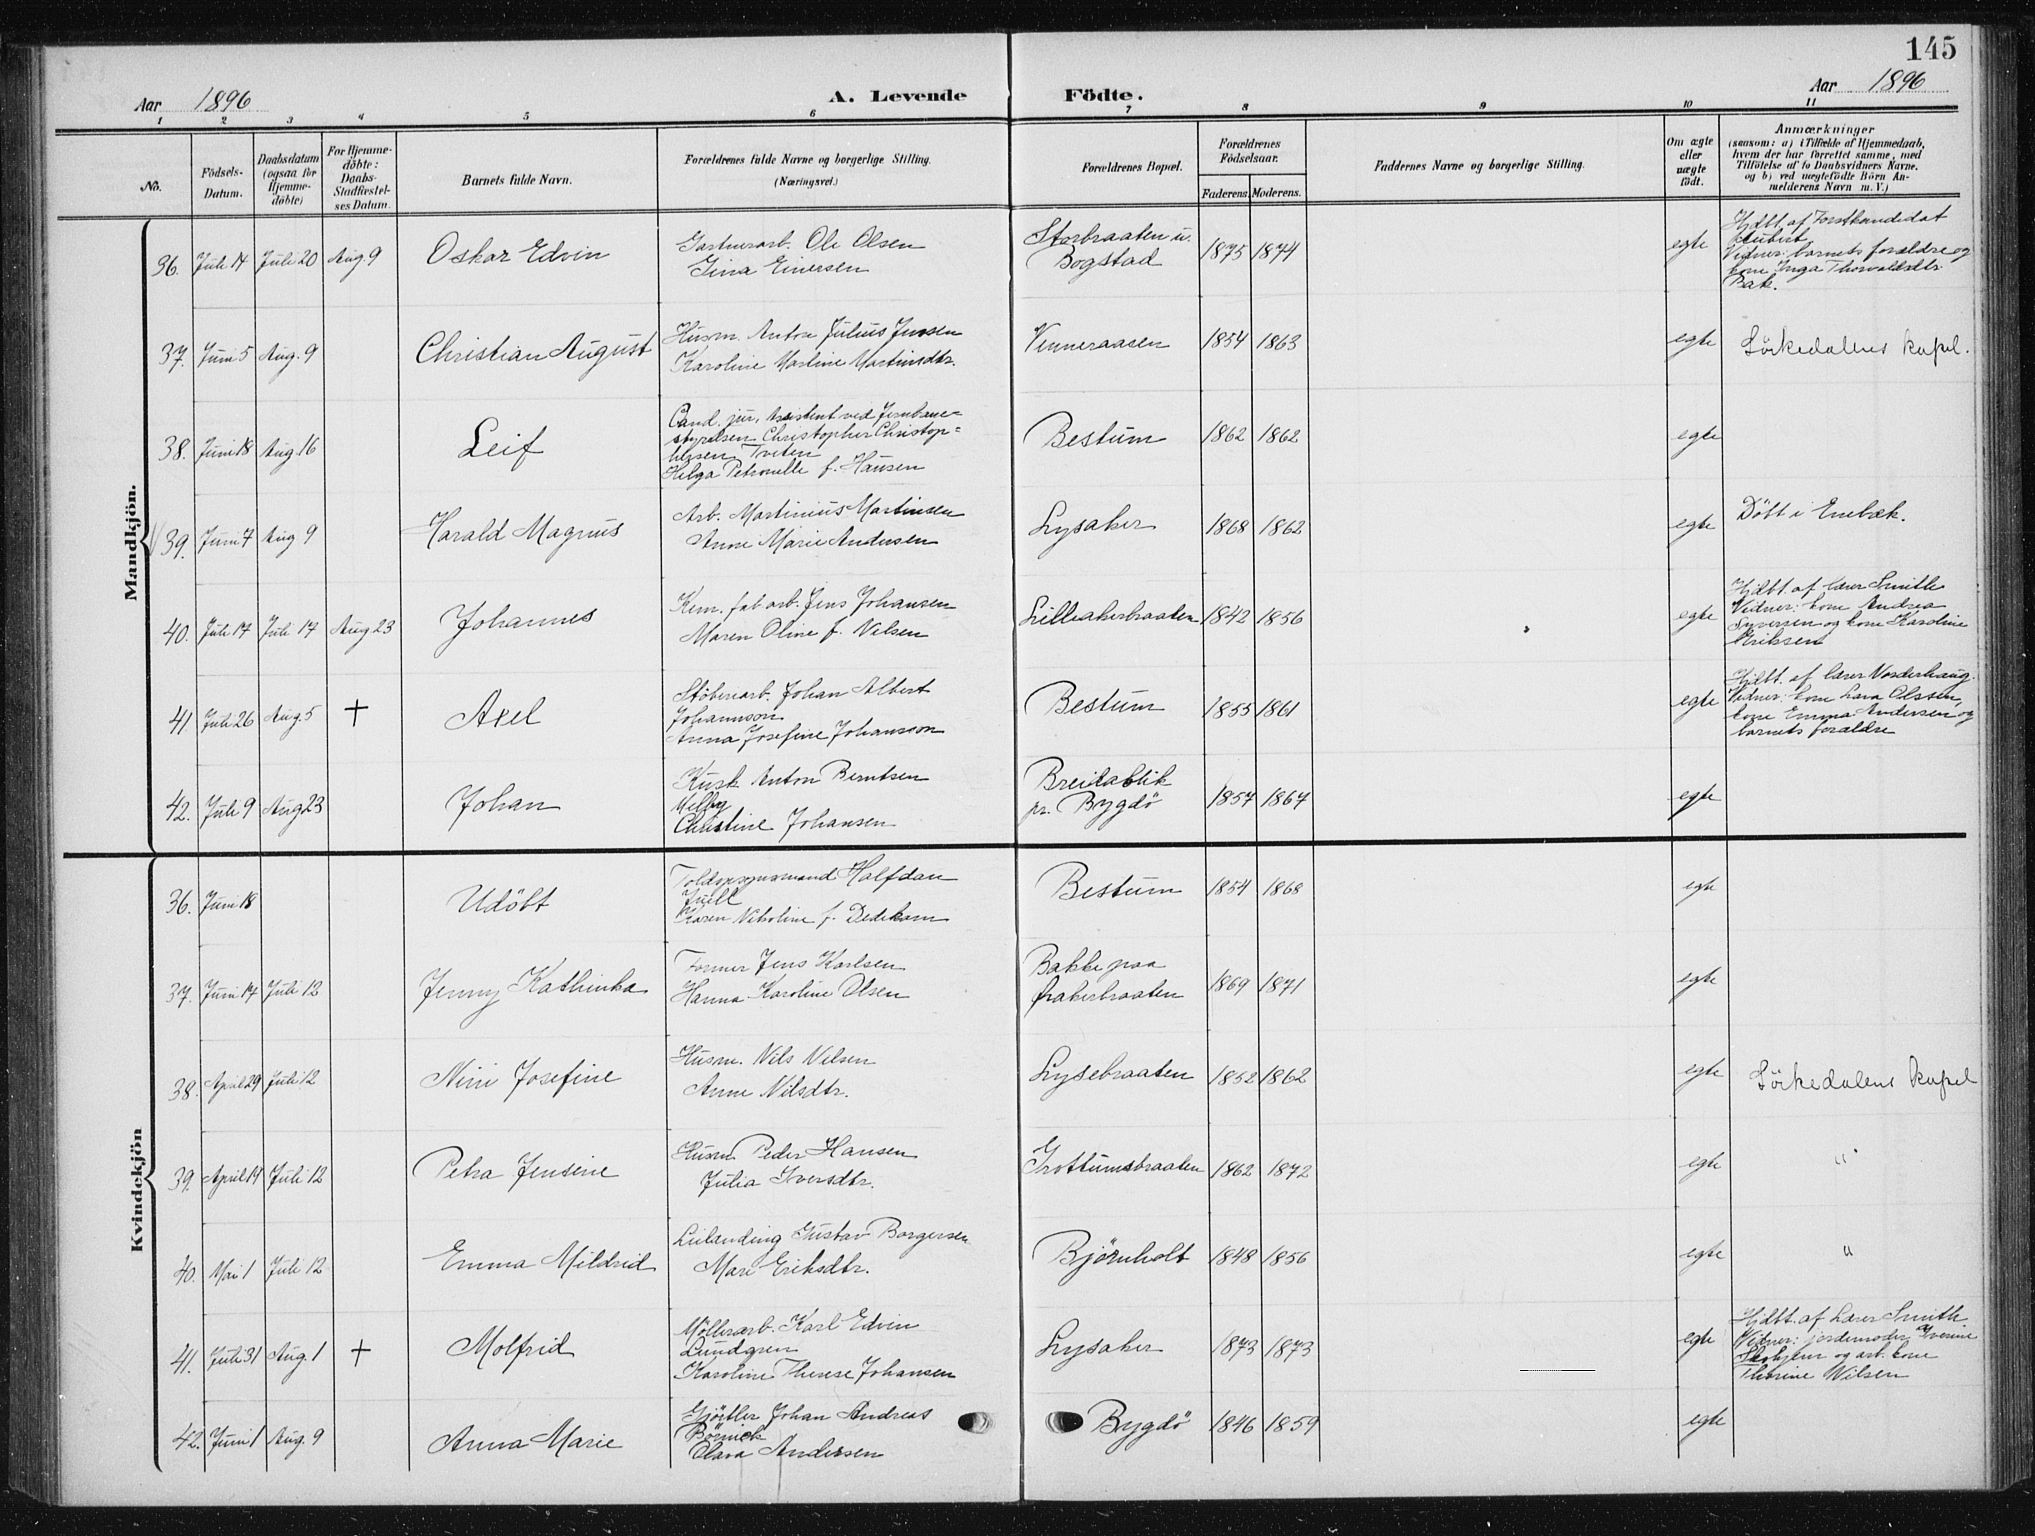 145
Aar 1896
A. Levende Födte.
Aar 1896
1 2 3 4 5 6 7 8 9 10 11
No.
Födsels-Datum.
Daabsdatum (ogsaa for Hjemme-döbte)
For Hjemme-döbte: Daabs-Stadfæstel-ses Datum.
Barnets fulde Navn.
Forældrenes fulde Navne og borgerlige Stilling. (Næringsvei.)
Forældrenes Bopæl.
Forældrenes Födselsaar.
Faderens. Moderens.
Faddernes Navne og borgerlige Stilling.
Om ægte eller uægte födt.
Anmærkninger
(saasom: a) i Tilfælde af Hjemmedaab,
hvem der har forrettet samme, med
Tilföielse af to Daabsvidners Navne.
og b) ved uægtefödte Börn An-
melderens Navn m. V.)
Mandkjön.
36. Juli 14 Juli 20 Aug. 9 Oskar Edvin
Gartnerarb. Ole Olsen
Gina Einersen
Storbraaten u.
Bogstad
1875 1874 egte
Hjdbt. af Forstkandidat
Vidner: barnets forældre og
kone Inga Thorvaldsdtr.
Bak.
37. Juni 5 Aug. 9 Christian August
Husm. Anton Julius Jensen
Karoline Martine Martinsdtr.
Vinneraasen 1854 1863 egte Sörkedalens kapel.
38. Juni 18 Aug. 16 Leif
Cand. jur, Assistent ved Jernbane-
styrelsen Christopher Christop-
hersen Tveten
Helga Petronelle f. Hansen
Bestum 1862 1862 egte
39. Juni 7 Aug 9 Harald Magnus
Arb. Martinius Martinsen
Anne Marie Andersen
Lysaker 1868 1862 egte Döbt i Enebak.
40. Juli 17 Juli 17 Aug 23 Johannes
Kem. fab arb. Jens Johansen
Maren Oline f. Nilsen
Lilleakerbraaten 1842 1856 egte
Hjdbt. af lærer Smith
Vidner: kone Andrea
Syversen og kone Karoline
Eriksen
41. Juli 26 Aug. 5 + Axel
Støberiarb. Johan Albert
Johannson
Anna Josefine Johansson
Bestum 1855 1861 egte
Hjdbt. af lærer Vorderhaug.
Vidner: kone Lara Olssen,
kone Emma Andersen og
barnets forældre
42. Juli 9 Aug 23 Johan
Kusk Anton Berntsen
Melby
Christine Johansen
Breidablik
pr. Bygdö
1857 1867 egte
Kvindekjön
36. Juni 18 Udöbt
Toldopsynsmand Halfdan
Juell
Karen Nikoline f. Dedekam
Bestum 1854 1868 egte
37. Juni 14 Juli 12 Jenny Kathinka
Former Jens Karlsen
Hanna Karoline Olsen
Bakke paa
Ørakerbraaten
1869 1871 egte
38. April 29 Juli 12 Nini Josefine
Husm. Nils Nilsen
Anne Nilsdtr.
Lysebraaten 1852 1862 egte Sörkedalens kapel
39. April 14 Juli 12 Petra Jensine
Husm Peder Hansen
Julia Iversdtr.
Grottumsbraaten 1862 1872 egte "
40. Mai 1 Juli 12 Emma Mildrid
Leilending Gustav Borgersen
Mari Eriksdtr.
Björnholt 1848 1856 egte "
41. Juli 31 Aug. 1 + Molfrid
Möllerarb. Karl Edvin
Lundgren
Karoline Therese Johansen
Lysaker 1873 1873 egte
Hjdbt. af Lærer Smith
Vidner: jordemoder Iverine
og arb. kone
Thorine Nilsen
42. Juni 1 Aug. 9 Anna Marie
Gjörtler Johan Andreas
Clara Andersen
Bygdö 1846 1859 egte